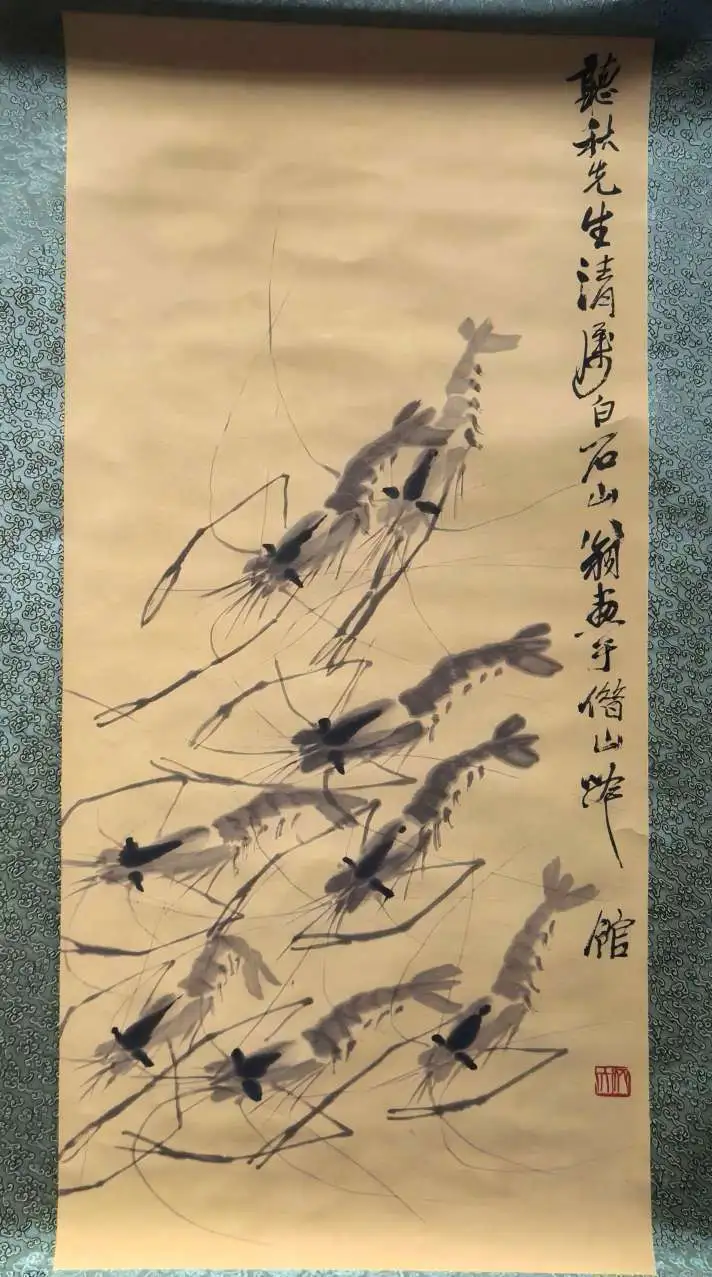 聽秋先生清属白石山翁画于借山吟
館